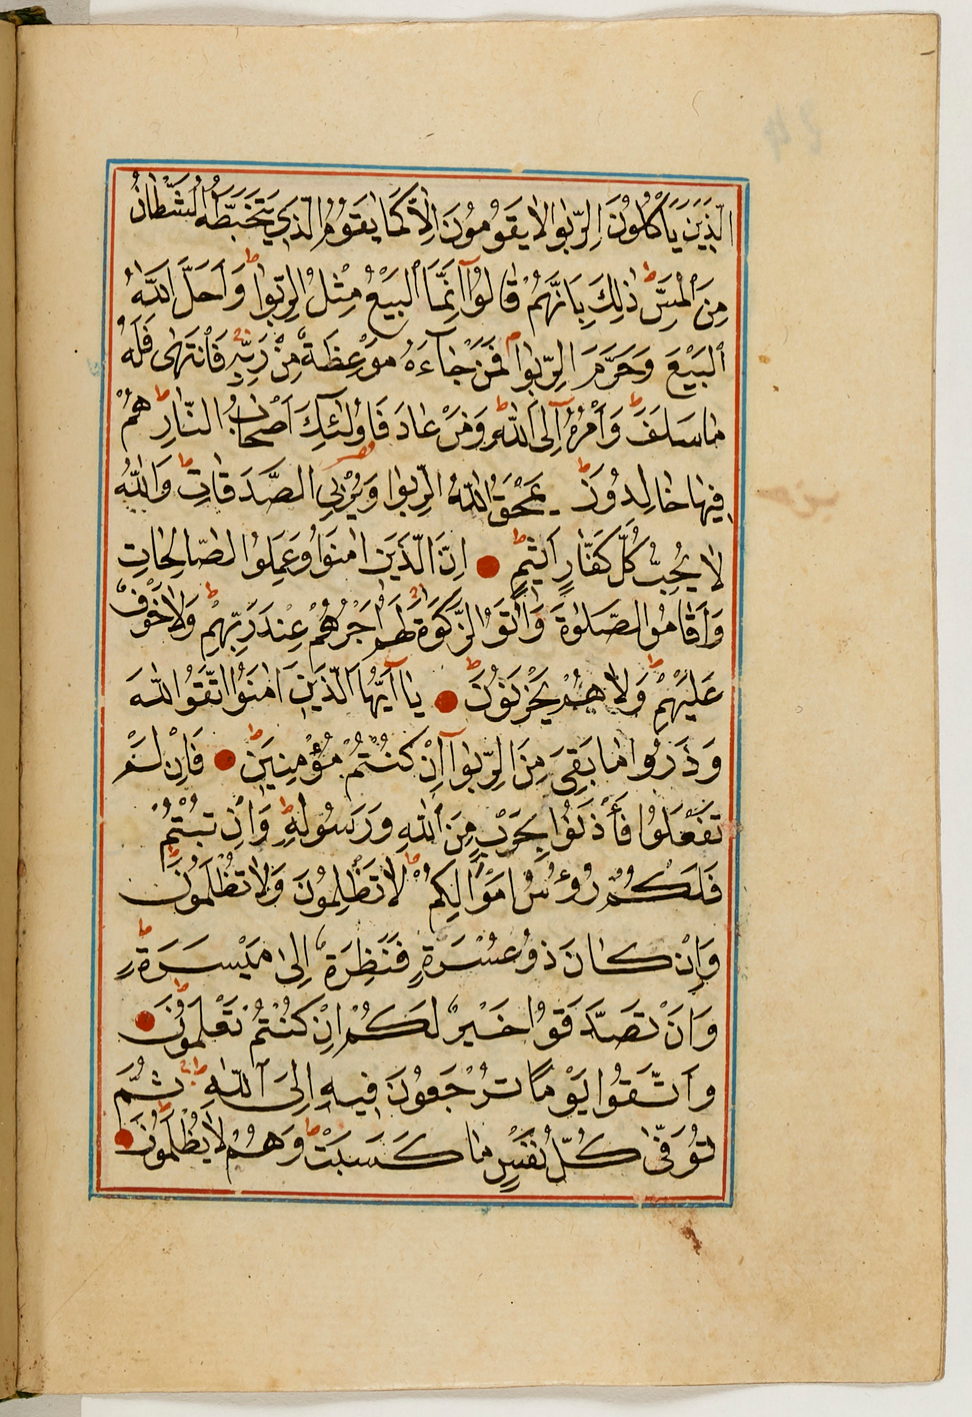 الَّذِينَ يَأْكُلُونَ الرِّبٰوا لَا يَقُومُونَ اِلَّا كَمَا يَقُومُ الَّذِي يَتَخَبَّطُهُ الشَّيْطَانُ
مِنَ الْمَسِّ ط ذٰلِكَ بِاَنَّهُمْ قَالُوٓا اِنَّمَا الْبَيْعُ مِثْلُ الرِّبٰوا ط وَاَحَلَّ اللّٰهُ
الْبَيْعَ وَحَرَّمَ الرِّبٰوا م فَمَنْ جَآءَهُ مَوْعِظَةٌ مِنْ رَبِّهِ فَانْتَهٰى فَلَهُ
مَا سَلَفَ ط وَاَمْرُهُٓ اِلَى اللّٰهِ ط وَمَنْ عَادَ فَاُولٰئِكَ اَصْحَابُ النَّارِ ط هُمْ
فِيهَا خَالِدُونَ ط يَمْحَقُ اللّٰهُ الرِّبٰوا وَيُرْبِي الصَّدَقَاتِ ط وَاللّٰهُ
لَا يُحِبُّ كُلَّ كَفَّارٍ اَثِيمٍ ط اِنَّ الَّذِينَ اٰمَنُوا وَعَمِلُوا الصَّالِحَاتِ
وَاَقَامُوا الصَّلٰوةَ وَاٰتَوُا الزَّكٰوةَ لَهُمْ اَجْرُهُمْ عِنْدَ رَبِّهِمْ ط وَلَا خَوْفٌ
عَلَيْهِمْ ط وَلَا هُمْ يَحْزَنُونَ ط يَا اَيُّهَا الَّذِينَ اٰمَنُوا اتَّقُوا اللّٰهَ
وَذَرُوا مَا بَقِيَ مِنَ الرِّبٰوٓا اِنْ كُنْتُمْ مُؤْمِنِينَ ط فَاِنْ لَمْ
تَفْعَلُوا فَأْذَنُوا بِحَرْبٍ مِنَ اللّٰهِ وَرَسُولِهِ ط وَاِنْ تُبْتُمْ
فَلَكُمْ رُوءُسُ اَمْوَالِكُمْ ط لَا تَظْلِمُونَ وَلَا تُظْلَمُونَ ط
وَاِنْ كَانَ ذُو عُسْرَةٍ فَنَظِرَةٌ اِلٰى مَيْسَرَةٍ ط
وَاَنْ تَصَدَّقُوا خَيْرٌ لَكُمْ اِنْ كُنْتُمْ تَعْلَمُونَ ط
وَاتَّقُوا يَوْمًا تُرْجَعُونَ فِيهِ اِلَى اللّٰهِ ط ثُمَّ
تُوَفّٰى كُلُّ نَفْسٍ مَا كَسَبَتْ ط وَهُمْ لَا يُظْلَمُونَ ط